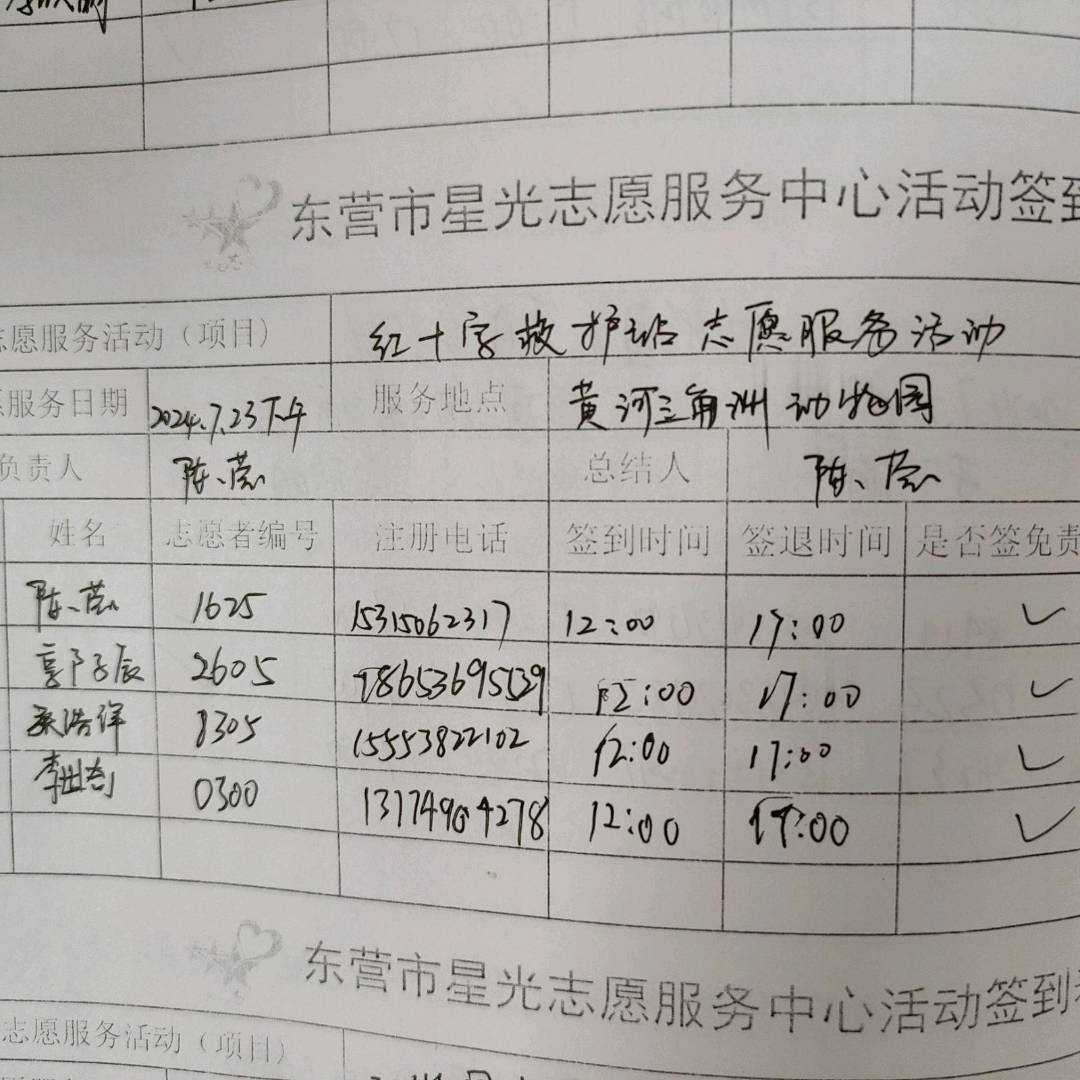 东营市星光志愿服务中心活动签到
志愿服务活动（项目） 红十字救护站志愿服务活动
服务日期 2024.7.23下午 服务地点 黄河三角洲动物园
负责人 总结人
姓名 志愿者编号 注册电话 签到时间 签退时间 是否签免责
1625 15315062317 12:00 17:00 ✓
2605 12:00 17:00 ✓
8305 15553822102 12:00 17:00 ✓
0300 12:00 17:00 ✓
东营市星光志愿服务中心活动签到
志愿服务活动（项目）